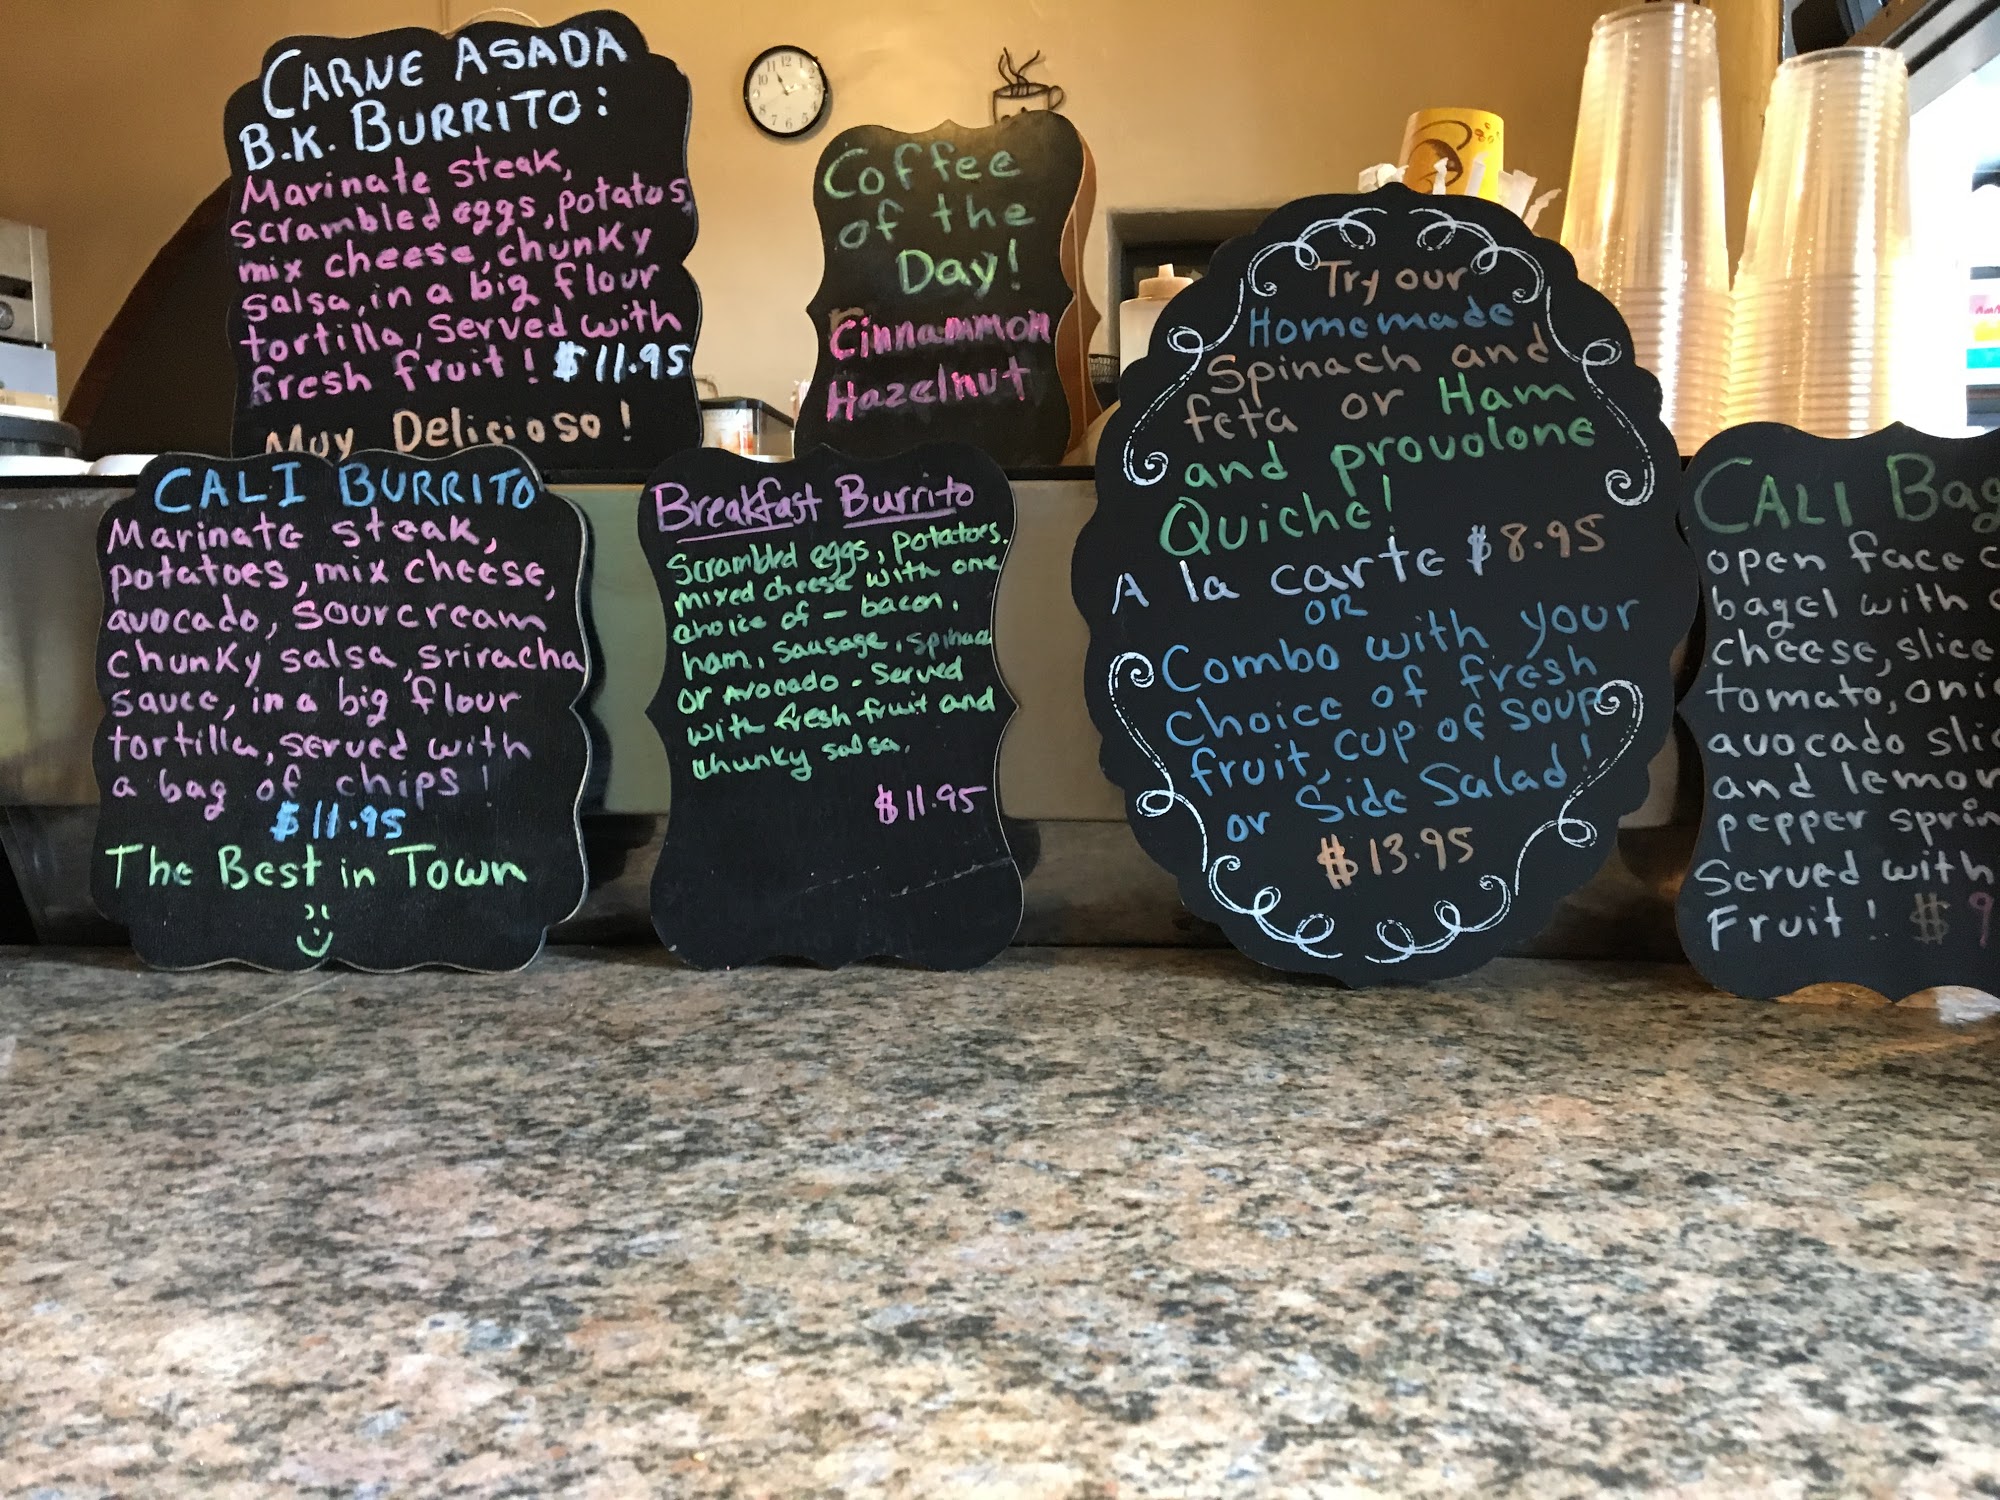 CARNE ASADA
B.K. BURRITO:
Marinate steak,
scrambled eggs, potatos,
mix cheese, chunky
salsa, in a big flour
tortilla, served with
fresh fruit! $11.95
Muy Delicioso!
Coffee
of the
Day!
Cinnammon
Hazelnut
CALI BURRITO
Marinate steak,
potatoes, mix cheese,
avocado, sourcream
chunky salsa, sriracha
sauce, in a big flour
tortilla, served with
a bag of chips!
$11.95
The Best in Town
Breakfast Burrito
Scrambled eggs, potatoes.
mixed cheese with one
choice of - bacon,
ham, sausage, spinac
or Avocado. Served
with fresh fruit and
chunky salsa.
$11.95
Try our
Homemade
Spinach and
feta or Ham
and provolone
Quiche!
A la carte $8.95
OR
Combo with your
Choice of fresh
fruit, cup of soup
or Side Salad!
$13.95
CALI Bag
open face
bagel with
cheese, slice
tomato, oni
avocado slic
and lemon
pepper sprin
Served with
Fruit! $9
10
11
12
1
2
3
4
5
6
7
8